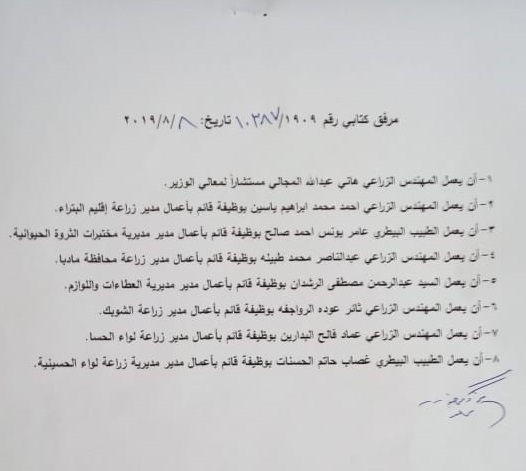 مرفق كتابي رقم ١٠٢٨٧/١٩٠٩ تاريخ: ٢٠١٩/٨/٨
١- أن يعمل المهندس الزراعي هاني عبدالله المجالي مستشاراً لمعالي الوزير.
٢- أن يعمل المهندس الزراعي احمد محمد ابراهيم ياسين بوظيفة قائم بأعمال مدير زراعة إقليم البتراء.
٣- أن يعمل الطبيب البيطري عامر يونس احمد صالح بوظيفة قائم بأعمال مدير مديرية مختبرات الثروة الحيوانية.
٤- أن يعمل المهندس الزراعي عبدالناصر محمد طبيشه بوظيفة قائم بأعمال مدير زراعة محافظة مادبا.
٥- أن يعمل السيد عبدالرحمن مصطفى الرشدان بوظيفة قائم بأعمال مدير مديرية العطاءات واللوازم.
٦- أن يعمل المهندس الزراعي ثائر عوده الرواجفه بوظيفة قائم بأعمال مدير زراعة الشوبك.
٧- أن يعمل المهندس الزراعي عماد فالح البدارين بوظيفة قائم بأعمال مدير زراعة لواء الحسا.
٨- أن يعمل الطبيب البيطري غصاب حاتم الحسنات بوظيفة قائم بأعمال مدير مديرية زراعة لواء الحسينية.